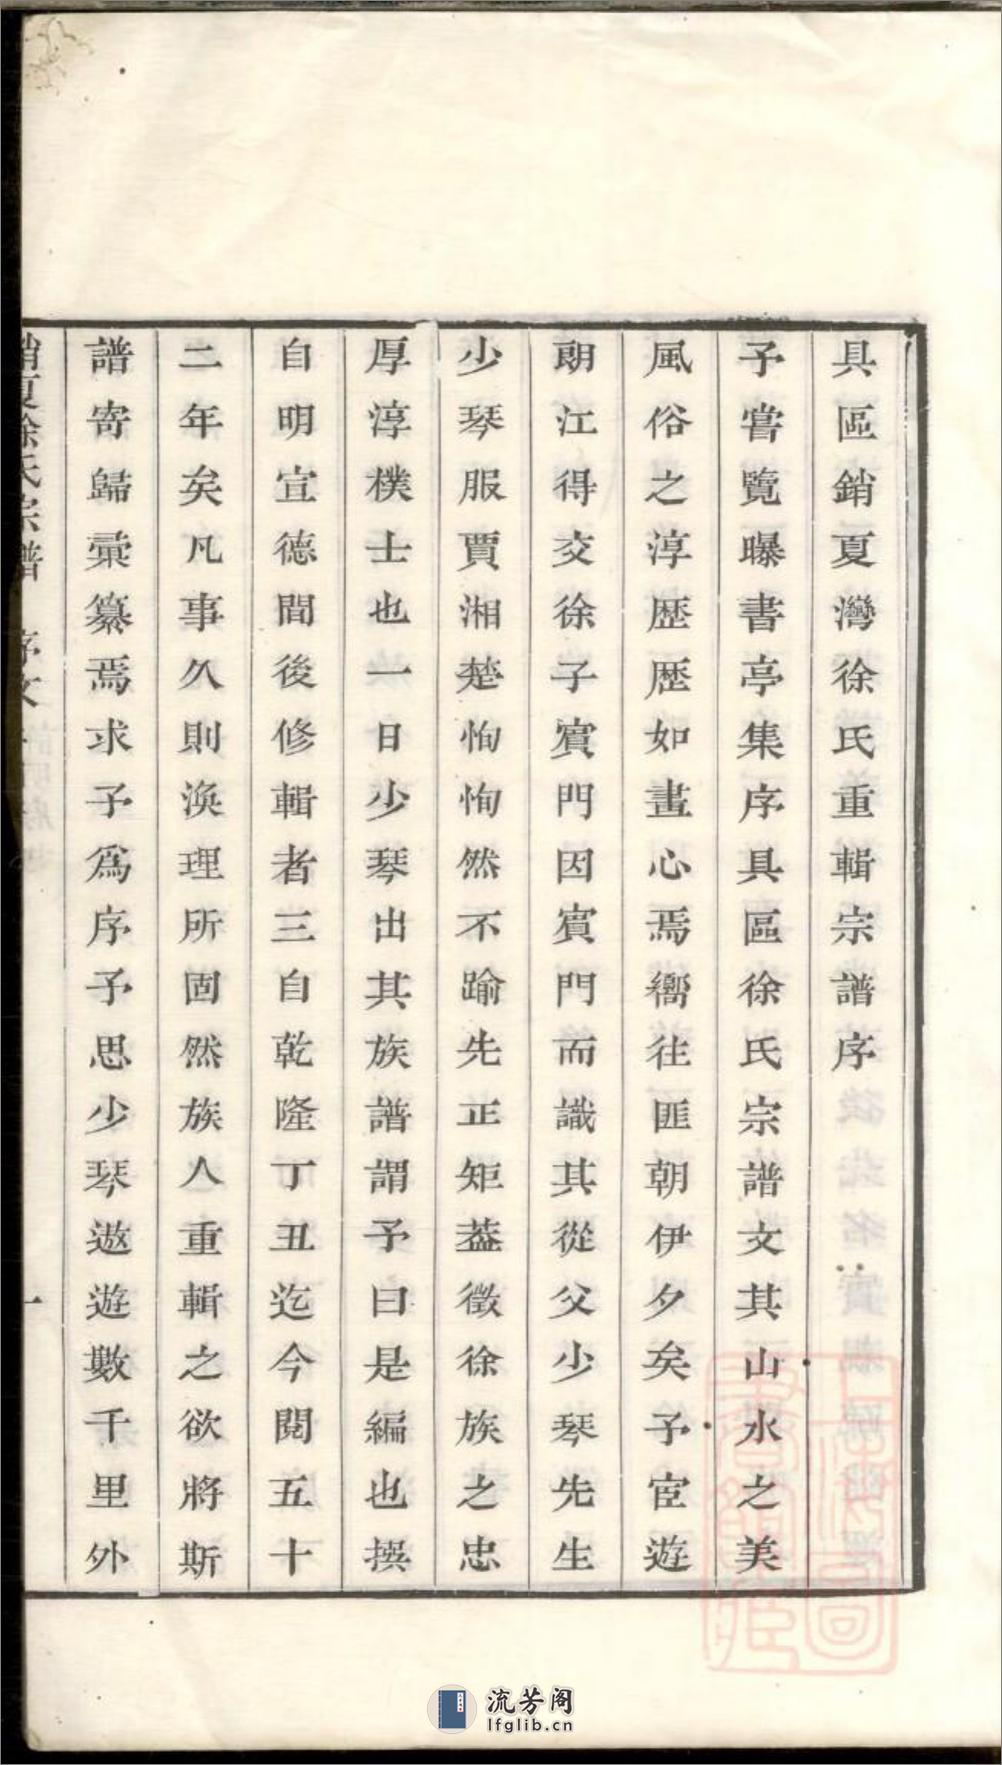 具區銷夏灣徐氏重輯宗譜序
予嘗覽曝書亭集序具區徐氏宗譜文其山水之美
風俗之淳歷歷如畫心焉嚮往匪朝伊夕矣予宦遊
朗江得交徐子賓門因賓門而識其從父少琴先生
少琴服賈湘楚恂恂然不踰先正矩葢徵徐族之忠
厚淳樸士也一日少琴出其族譜謂予曰是編也撰
自明宣德間後修輯者三自乾隆丁丑迄今閱五十
二年矣凡事久則渙理所固然族人重輯之欲將斯
譜寄歸彙纂焉求予爲序予思少琴遨遊數千里外
銷夏徐氏宗譜 序文 一
流芳阁
lfglib.cn